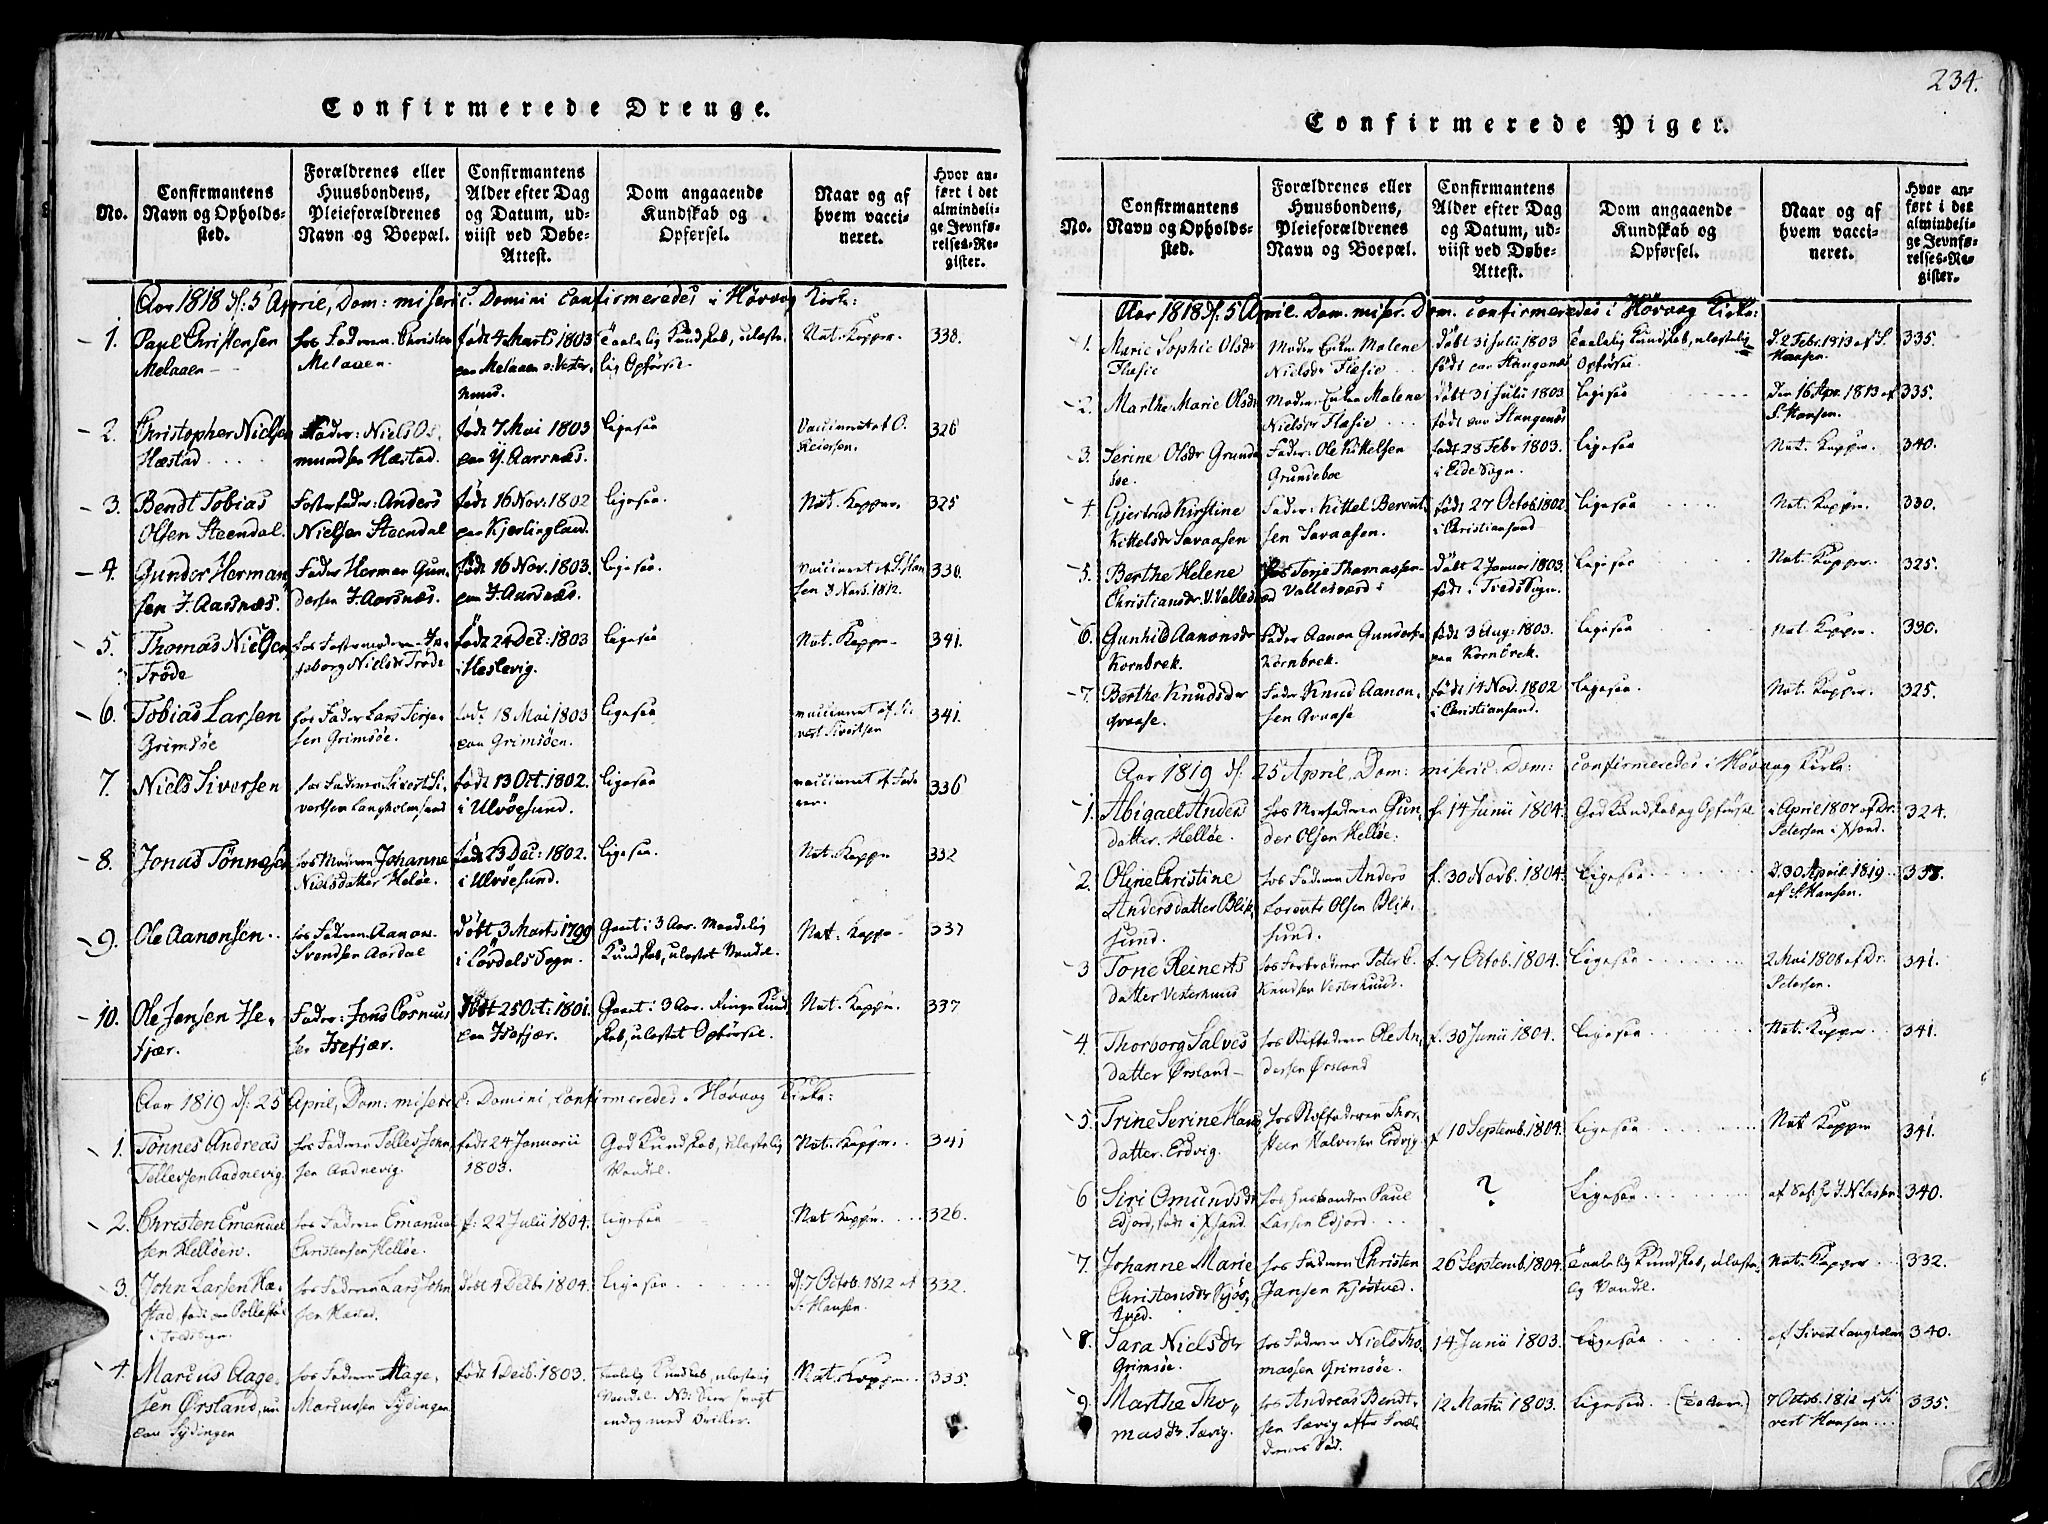 234.
Confirmerede Drenge.
No.
Confirmantens Navn og Opholds-sted.
Forældrenes eller Huusbondens, Pleieforældrenes Navn og Boepæl.
Confirmantens Alder efter Dag og Datum, ud-viist ved Døbe-Attest.
Dom angaaende Kundskab og Opførsel.
Naar og af hvem vacci-neret.
Hvor an-ført i det almindeli-ge Jevnfø-relses-Re-gister.
Aar 1818 d: 5 Aprile, Dom: miseric. Domini confirmeredes i Høvaag Kirke:
1. Paul Christensen Melaaen hos Faderen Christen Melaaen født 4 Marts 1803 paa Melaaen Taalelig Kundskab, ulastelig Opførsel Nat. Kopper. 338.
2. Christopher Nielsen Hæstad Fader: Niels Osmundsen Hæstad. født 7 Mai 1803 paa Y. Aarsnæs. ligesaa Vaccineret af O. Reiersen. 326
3. Bendt Tobias Olsen Steendal. Fosterfader: Anders Nielsen Steendal født 16 Nov. 1802 paa Kjerlingland. ligesaa. Nat. Kopper. 325
4. Gunder Herman sen I. Aarsnæs. Fader Herman Gundersen I. Aarsnæs. født 16 Nov. 1803. paa I. Aarsnæs. ligesaa. vaccineret af S. Hansen 3 Novb. 1812. 330.
5. Thomas Nielsen Trøde hos Fostermoderen Ingeborg Nielsdr Trøde født 24 Dec: 1803 i Heslevig. ligesaa Nat. Kopper 341.
6. Tobias Larsen Grimsøe hos Fader Lars Terjesen Grimsøe. født 18 Mai 1803 paa Grimsøen. ligesaa vaccineret af Sivert Sivertsen 341.
7. Niels Siversen hos Faderen Sivert Sivertsen Langholmsund født 13 Oct. 1802. i Ulvøesund. ligesaa vaccineret af Faderen. 336
8. Jonas Tønnesen hos Moderen Johanne Nielsdatter Heløe. født 23 Dec: 1802. i Ulvøesund. ligesaa. Nat. Kopper 332
9. Ole Aanonsen hos Faderen Aanon Svendsen Aardal døbt 3 Marts 1799 i Lövdals Sogn. Gaaet i 3 Aar. Maadelig Kundskab, ulastet Vandel. Nat. Kopper 337
10. Ole Jensen Hefjær. Fader: Jens Rasmussen Isefjær. døbt 25 Oct: 1801. paa Isefjær. Gaaet i 3 Aar. Ringe Kundskab, ulastet Opførsel. Nat. Kopper. 337
Aar 1819 d: 25 April, Dom: miseric: Domini, confirmeredes i Høvaag Kirke:
1. Tønnes Andreas Tellevsen Aadnevig. hos Faderen Tellev Johnsen Aadnevig. født 24 Januarii 1803. God Kundskab, ulastelig Vandel. Nat. Kopper. 341
2. Christen Emanuel sen Helløen. hos Faderen Emanuel Christensen Helløe. f: 22 Julii 1804. ligesaa Nat Kopper. 326.
3. John Larsen Hæstad, født paa i Sogn. hos Faderen Lars Johnsen Hæstad. døbt 4 Decbr 1804. ligesaa d: 7 Octob. 1812 af S. Hansen. 332.
4. Marcus Aagesen Ørsland, nu paa Sydingen hos Faderen Aage Marcussen Sydingen født 1 Decb. 1803. Taalelig Kundskab, ulastelig Vandel. NB. Nat. Kopper 335.
Confirmerede Piger.
No.
Confirmantens Navn og Opholds-sted.
Forældrenes eller Huusbondens, Pleieforældrenes Navn og Boepæl.
Confirmantens Alder efter Dag og Datum, ud-viist ved Døbe-Attest.
Dom angaaende Kundskab og Opførsel.
Naar og af hvem vacci-neret.
Hvor an-ført i det almindeli-ge Jevnfø-relses-Re-gister.
Aar 1818 d: 5 April. Dom. miser. Dom. confirmeredes i Høvaag Kirke:
1. Marie Sophie Olsdr Flæsie Moder Enken Malene Nielsdr Flæsie døbt 31 Julii 1803 født paa Stangenæs Taalelig Kundskab, ulastelig Opførsel d. 2 Febr. 1813 af S. Hansen. 335.
2. Marthe Marie Olsdr Moder: Enken Malene Nielsdr Flæsie døbt 31 Julii 1803. født paa Stangenæs ligesaa Den 16 Apr. 1813 af S. Hansen. 335.
3. Serine Olsdr Grundesøe. Fader: Ole Kittelsen Grundeboe født 28 Febr 1803. i Eide Sogn. ligesaa Nat. Kopper. 340.
4. Gjertrud Kirstine Kittelsdr Saraasen Fader: Kittel Berentsen Saraasen. født 27 Octob. 1802 i Christiansand ligesaa Nat. Kopper. 330.
5. Berthe Helene Christiansdr V. Valle hos Terje Thomassen Vallesværd døbt 2 Januar 1803. født i Treds Sogn. ligesaa Nat. Kopper. 325.
6. Gunhild Aanonsdr Kornbrek. Fader Aanon Gundersen Kornbrek. født 3 Aug: 1803. paa Kornbrek. ligesaa Nat. Kopper. 330.
7. Berthe Knudsdr Qvaase. Fader Knud Aanonsen Qvaase født 14 Nov. 1802 i Christiansand. ligesaa. Nat. Kopper. 325.
Aar 1819 d: 25 April, Dom: miseric: Dom: confirmeredes i Høvaag Kirke:
1. Abigael Andersdatter. Helløe. hos Morfaderen Gunder Olsen Helløe. f. 14 Junii 1804. God Kundskab og Opførsel i April 1807 af Dr. Petersen i Xsand. 324.
2. Oline Christine Andersdatter Bliksund. hos Faderen Anders Lorents Olsen Bliksund. f. 30 Novb. 1804. ligesaa d. 30 April 1819 af S. Hansen. 338.
3 Tone Reinertsdatter Vesterhuus hos Farbroderen Peter C. Knudsen Vesterhuus. f. 7 Octob. 1804. ligesaa 2 Mai 1808 af Dr. Petersen. 341.
4. Thorborg Salvesdatter Ørsland hos Stiffaderen Ole Andersen Ørsland f. 30 Junii 1804. ligesaa Nat. Kopper 341.
5. Trine Serine Hansdatter. Erdvig. hos Stiffaderen Thorsteen Halvorsen Erdvig f 10 Septemb. 1804. ligesaa Nat Kopper 341.
6 Siri Omundsdr Edjord, født i Xsand. hos Husbonden Paul Larsen Edjord. ? ligesaa 340.
7. Johanne Marie Christensdr Kjøstved. hos Faderen Christen Jansen Kjøstved. 26 Septemb. 1804 Taalelig Kundskab, ulastelig Vandel. Nat. Kopper 332.
8. Sara Nielsdr Grimsøe. hos Faderen Niels Thomassen Grimsøe. 14 Junii 1803. ligesaa af Sivert Langholm 340.
9. Marthe Thomasdr. Sævig. hos Andreas Bendtsen Sævig efter Forældrenes Død. 12 Martii 1803. ligesaa 7 Octob. 1812 af Sivert Hansen 335.